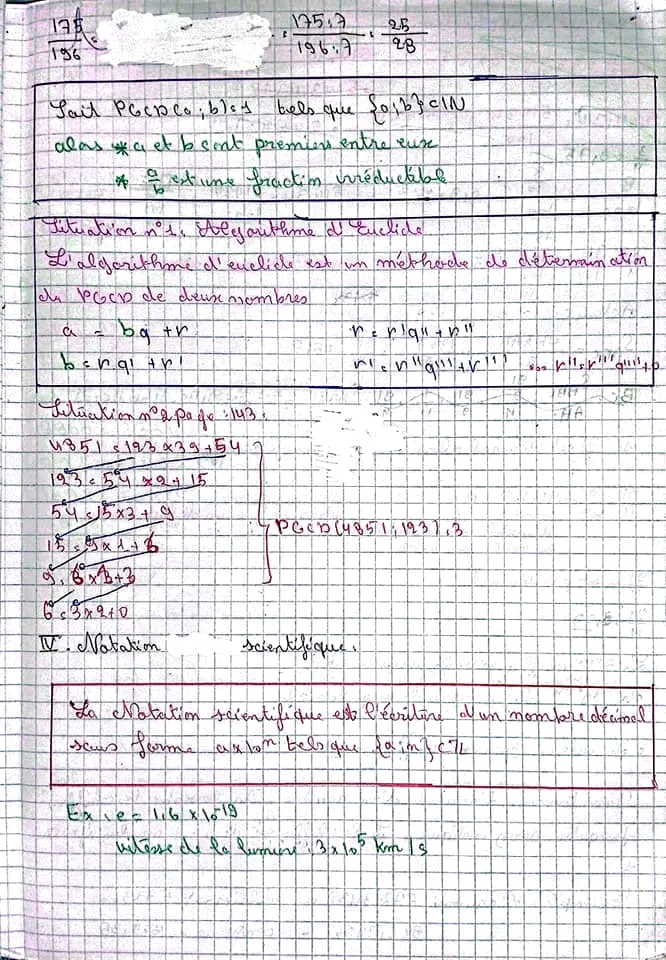 175/196 = 175:7/196:7 = 25/28
Soit PGCD(a;b)=1 tels que {a;b}⊂IN
alors * a et b sont premiers entre eux
* a/b est une fraction irréductible
Situation n°1: Algorithme d'Euclide
L'algorithme d'euclide est un méthode de détermination
du PGCD de deux nombres
a = bq + r r = r'q'' + r''
b = rq' + r' r' = r''q''' + r''' ... r'' = r'''q'''' + 0
Situation n°2 page :143:
4851 = 123 x 39 + 54
123 = 54 x 2 + 15
54 = 15 x 3 + 9
PGCD(4851;123)=3
15 = 9 x 1 + 6
9 = 6 x 1 + 3
6 = 3 x 2 + 0
IV. Notation scientifique.
La Notation scientifique est l'écriture d'un nombre décimal
sous forme a x 10ⁿ tels que {a;n} ⊂ Z
Ex : e = 1,6 x 10⁻¹⁹
vitesse de la lumière : 3 x 10⁵ km/s